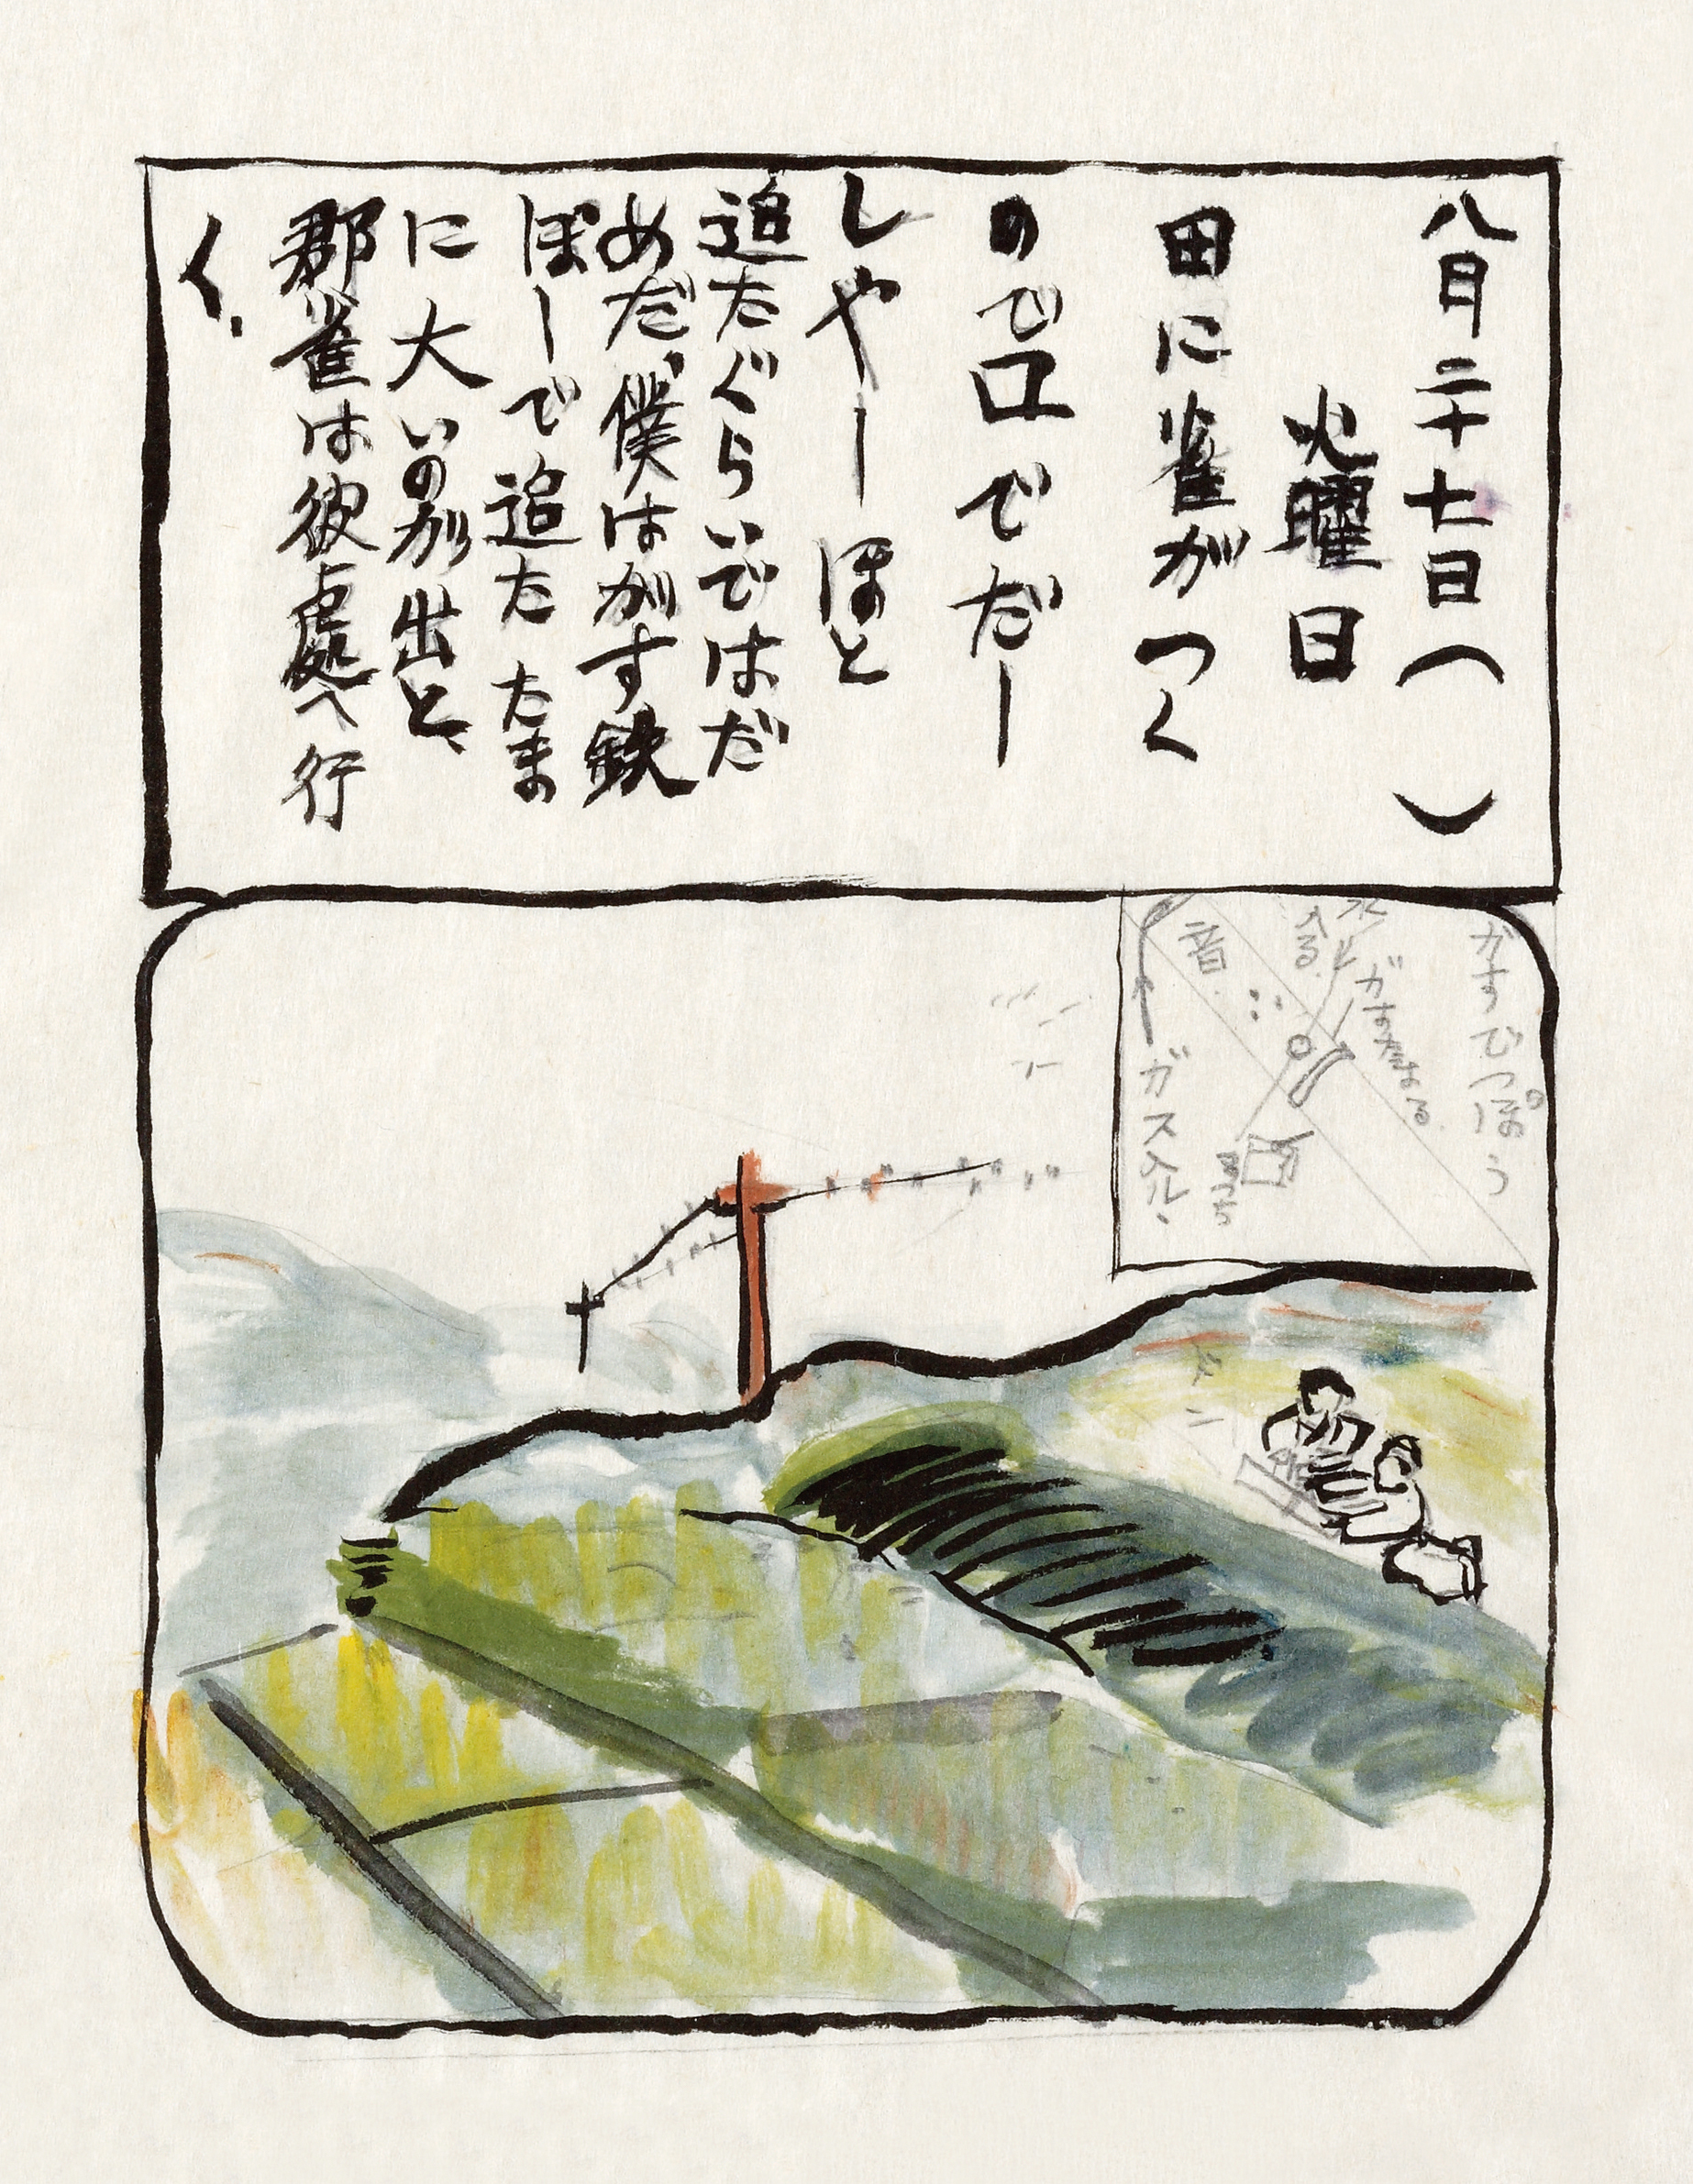 八月二十七日（　　）
火曜日
田に雀がつく
ので口でだー
しやーーほと
追たぐらいではだ
めだ、僕はがす鉄
ぽーで追た たま
に大いのが出と、
郡雀は彼處へ行
く.
がすでっぽう
ガすたまる
入る
音
ガス入ル.
まっち